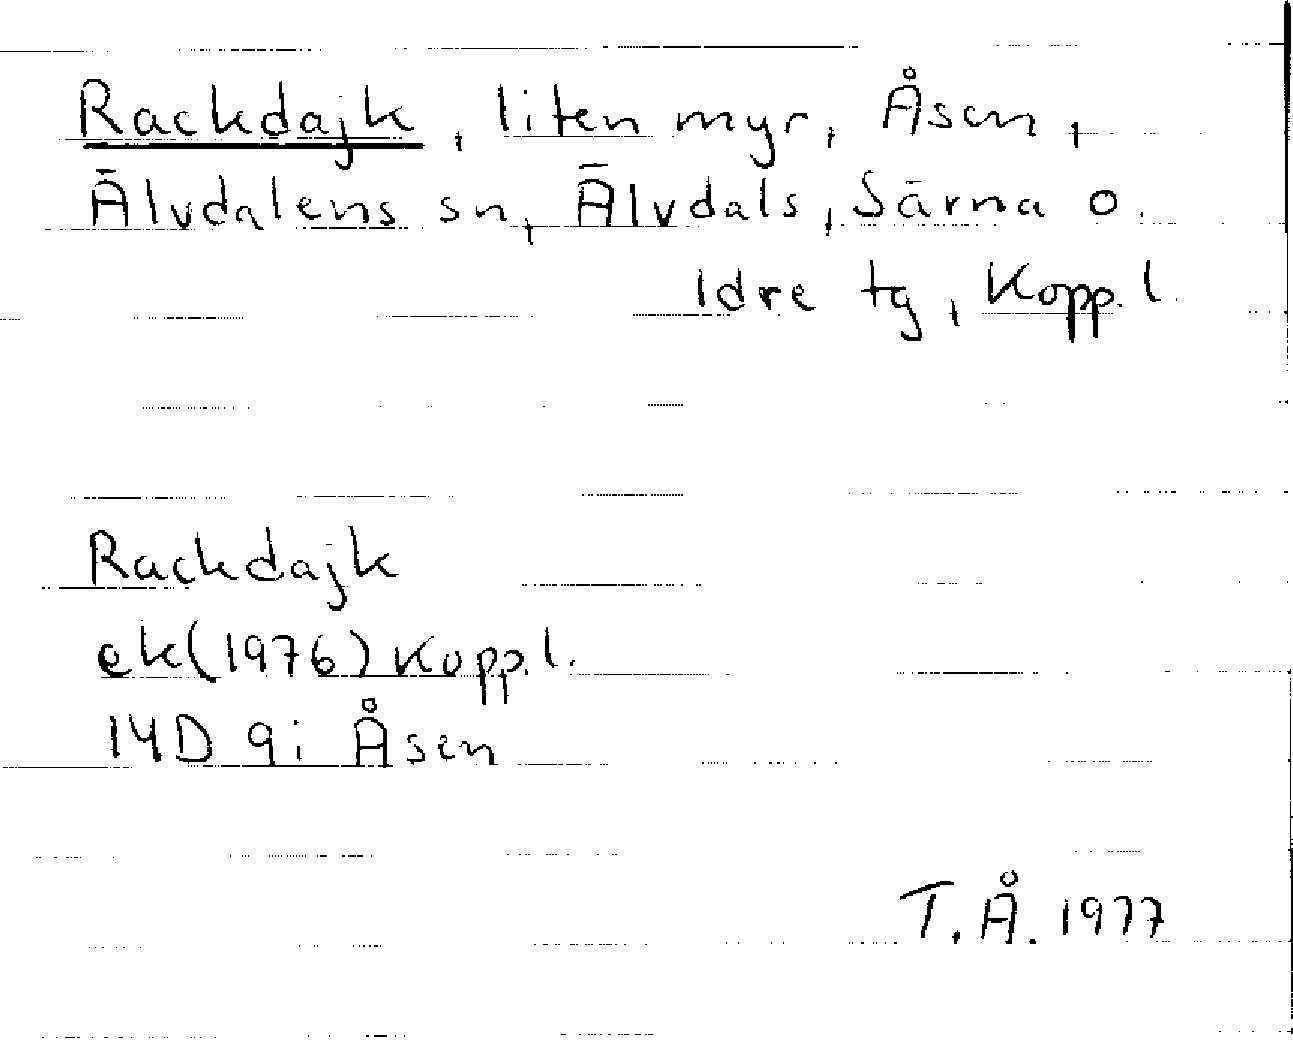 Rackdajk, liten myr, Åsen,
Älvdalens sn, Älvdals, Särna o.
Idre tg, Kopp. l.
Rackdajk
ek(1976) Kopp. l.
14D 9i Åsen
T.Å. 1977